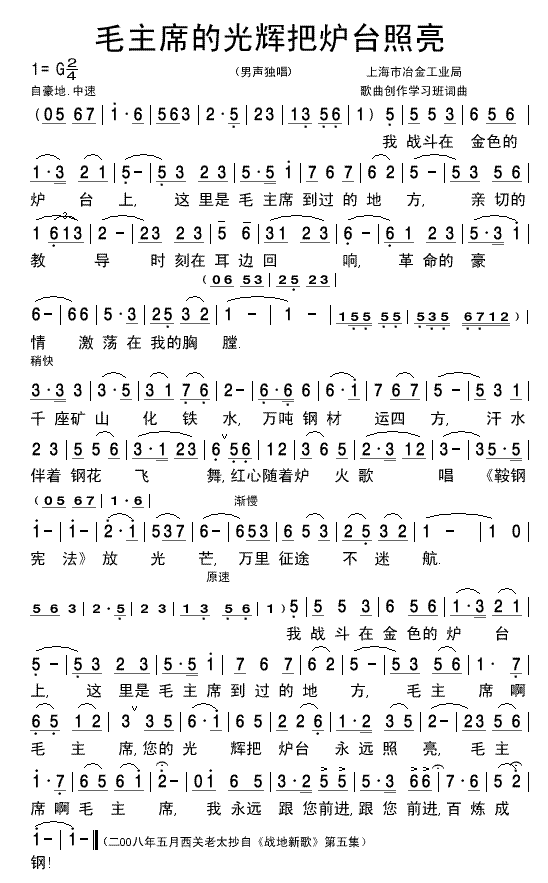 毛主席的光辉把炉台照亮
1=G2/4 (男声独唱) 上海市冶金工业局
自豪地.中速 歌曲创作学习班词曲
(05 67|1·6|563|2·5|23|13 56|1)5|5 53|6 56|
我 战斗在 金色的
1·3 21|5-|53 23|5·5 1|767|62|5-|53 56|
炉 台 上, 这里是毛 主席到过的地 方, 亲切的
1 613|2-|23 23|5 6|31 23|6-|61 23|5·3 1|
教 导 时刻在耳边回 响, 革命的豪
(06 53|25 23|
6-|66|5·3|25 32|1-|1-|155 55|535 6712)|
情 激荡在我的胸 膛.
稍快
3·3 3|3·5|31 76|2-|6·6 6|6·1|767|5-|531|
千座矿山 化 铁 水, 万吨钢材 运四方, 汗水
23|556|3·1 23|6 56|12|365|2·3 12|3-|35·5|
伴着 钢花 飞 舞,红心随着炉 火歌 唱 《鞍钢
(05 67|1·6| 渐慢
1-|1-|2·1|537|6-|653|653|25 32|1-|10
宪 法》 放 光 芒, 万里征途 不 迷 航.
原速
563|2·5|23|13 56|1)5|5 53|6 56|1·3 21|
我 战斗在金色的炉 台
5-|53 23|5·5 1|767|62|5-|53 56|1·7|
上, 这 里是毛 主席到过的地 方, 毛 主 席啊
65 12|3 3 35|6·1|65|226|1·2 35|2-|23 56|
毛 主 席,您的光 辉把 炉台 永远照 亮, 毛主
1·7|65 61|2-|01 65|3·2 55|3·2 66|6·7|52|
席啊毛 主 席, 我永远 跟您前进,跟您前进,百炼成
1-|1-‖(二00八年五月西关老太抄自《战地新歌》第五集)
钢!